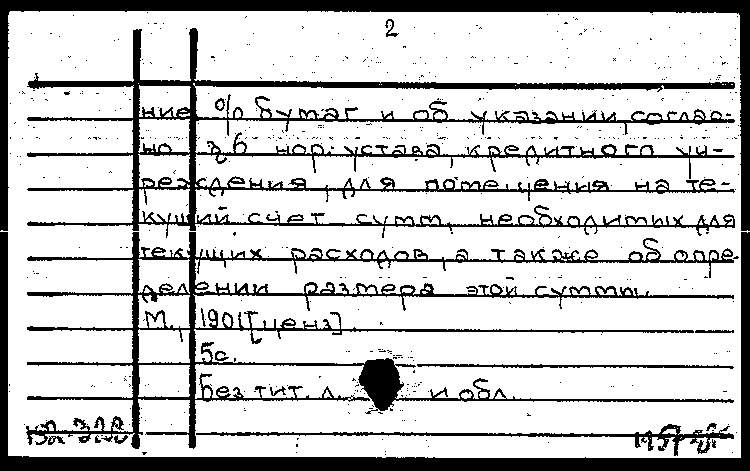 2
ние % бумаг и об указании, соглас-
но § 6 нор. устава, кредитного уч-
реждения, для помещения на те-
кущий счет сумм, необходимых для
текущих расходов, а также об опре-
делении размера этой суммы.
М., 1901 [ценз].
5с.
Без тит. л. и обл.